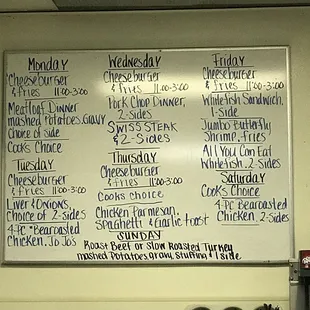 Monday
Cheeseburger
& Fries 11:00-3:00
Meatloaf Dinner
mashed Potatoes, Gravy
Choice of side
Cooks Choice
Tuesday
Cheeseburger
& Fries 11:00-3:00
Liver & Onions,
Choice of 2-Sides
4-PC *Bearoasted
Chicken, JoJos
Wednesday
Cheeseburger
& Fries 11:00-3:00
Pork Chop Dinner,
2-Sides
Swiss Steak
& 2-Sides
Thursday
Cheeseburger
& Fries 11:00-3:00
Cooks choice
Chicken Parmesan,
Spaghetti & Garlic toast
Friday
Cheeseburger
& Fries 11:00-3:00
Whitefish Sandwich,
1-Side
Jumbo Butterfly
Shrimp, fries
All You Can Eat
Whitefish, 2-Sides
Saturday
Cooks Choice
4-PC Bearoasted
Chicken, 2-Sides
SUNDAY
Roast Beef or Slow Roasted Turkey
mashed Potatoes, gravy, Stuffing & 1 side